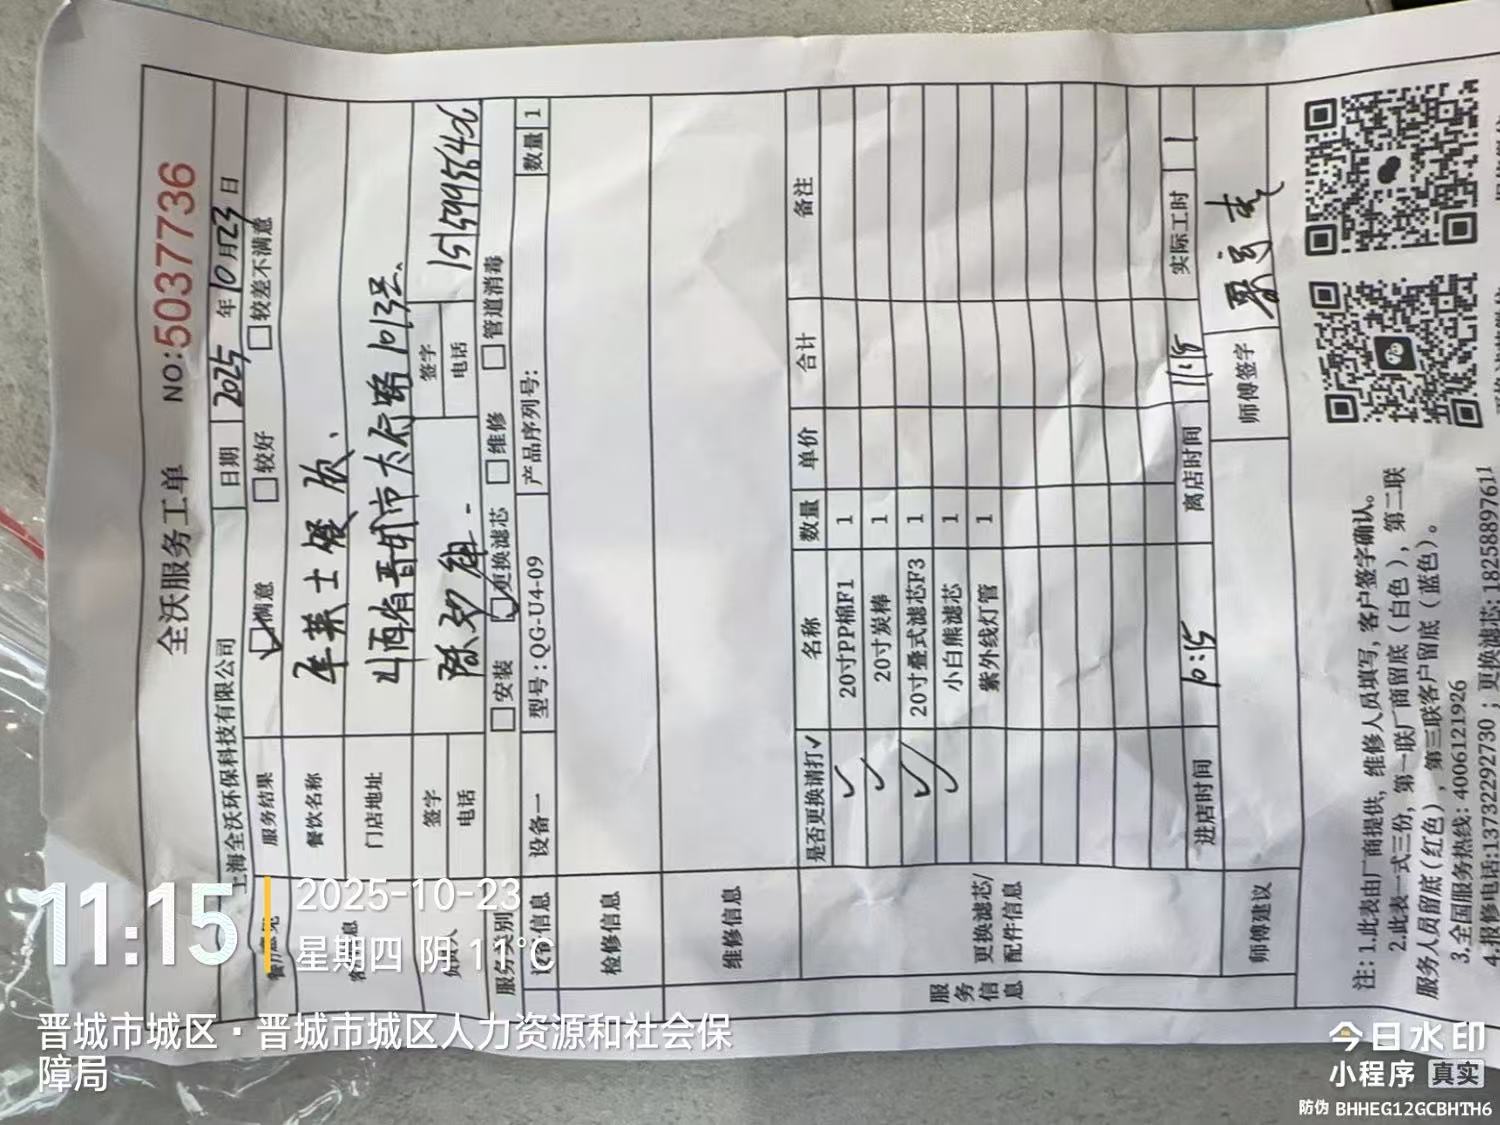 全沃服务工单 NO:5037736
上海全沃环保科技有限公司 日期 2025 年 10 月 23 日
服务结果 满意 较好 较差不满意
餐饮名称
门店地址 山西省晋城市太行路1013号
签字 签字
电话 电话 15159956406
服务类别 安装 更换滤芯 维修 管道消毒
设备信息 设备一 型号:QG-U4-09 产品序列号: 数量 1
检修信息
维修信息
服务信息
更换滤芯/配件信息
是否更换请打✓ 名称 数量 单价 合计 备注
✓ 20寸PP棉F1 1
✓ 20寸炭棒 1
✓ 20寸叠式滤芯F3 1
✓ 小白熊滤芯 1
紫外线灯管 1
进店时间 10:15 离店时间 11:15 实际工时 1
师傅建议 师傅签字
注:1.此表由厂商提供,维修人员填写,客户签字确认。
2.此表一式三份,第一联厂商留底(白色),第二联
服务人员留底(红色),第三联客户留底(蓝色)。
3.全国服务热线:4006121926
4.报修电话:13732292730;更换滤芯:18258897611
11:15
2025-10-23
星期四 阴 11°C
晋城市城区·晋城市城区人力资源和社会保
障局
今日水印
小程序 真实
防伪 BHHEG12GCBHTH6